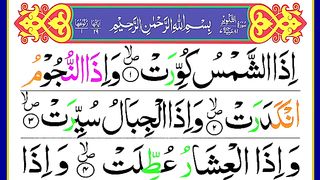 بِسْمِ اللهِ الرَّحْمٰنِ الرَّحِيْمِ
اِذَا الشَّمْسُ كُوِّرَتْ ۝١ وَاِذَا النُّجُوْمُ
انْكَدَرَتْ ۝٢ وَاِذَا الْجِبَالُ سُيِّرَتْ ۝٣
وَاِذَا الْعِشَارُ عُطِّلَتْ ۝٤ وَاِذَا